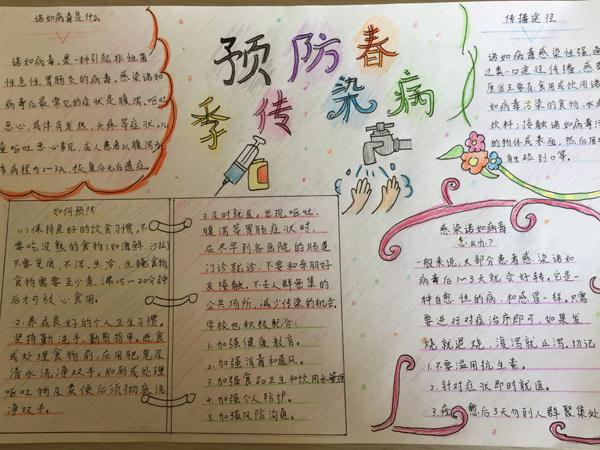 诺如病毒是什么
诺如病毒,是一种引起非性菌
性急性胃肠炎的病毒。感染诺如
病毒后最常见的症状是腹泻、呕吐
恶心,或伴有发热、头疼等症状。儿
童呕吐恶心常见,成人患者以腹泻为
病程为2~3天,恢复后无后遗症。
预防春
季传染病
传播途径
诺如病毒感染性强,通
过粪-口途径传播,感染
原因主要有:食用或饮用诺
如病毒污染的食物、水或
饮料;接触诺如病毒污
的物体或表面,然后用
触碰到口等。
如何预防
1、保持良好的饮食习惯,不
要吃没熟的食物(如海鲜、沙拉)
不要变质、不洁、生冷、生腌食物
食物需要至少煮沸15~20分钟
后才可放心食用。
2、养成良好的个人卫生习惯。
坚持勤洗手、勤剪指甲。进食
或处理食物前,应用肥皂及
清水洗净双手。如刚或处理
呕吐物及粪便后须彻底洗
净双手。
3.及时就医。出现呕吐、
腹泻等胃肠症状时,
应尽早到各医院的肠道
门诊就诊,不要和亲朋好
友接触,不去人群密集的
公共场所,减少传染的机会。
学校也积极配合:
1.加强健康教育。
2.加强消毒和通风。
3.加强食品卫生和饮用水管理
4.加强个人防护。
5.加强风险沟通。
感染诺如病毒
怎么办?
一般来说,大部分患者感染诺如
病毒后1~3天就会好转。它是一
种自愈性的病,和感冒一样,只需
要进行对症治疗即可。如果发
烧就退烧,腹泻就止泻,切记
1.不要滥用抗生素。
2.针对症状即时就医。
3.病愈后3天勿到人群聚集处